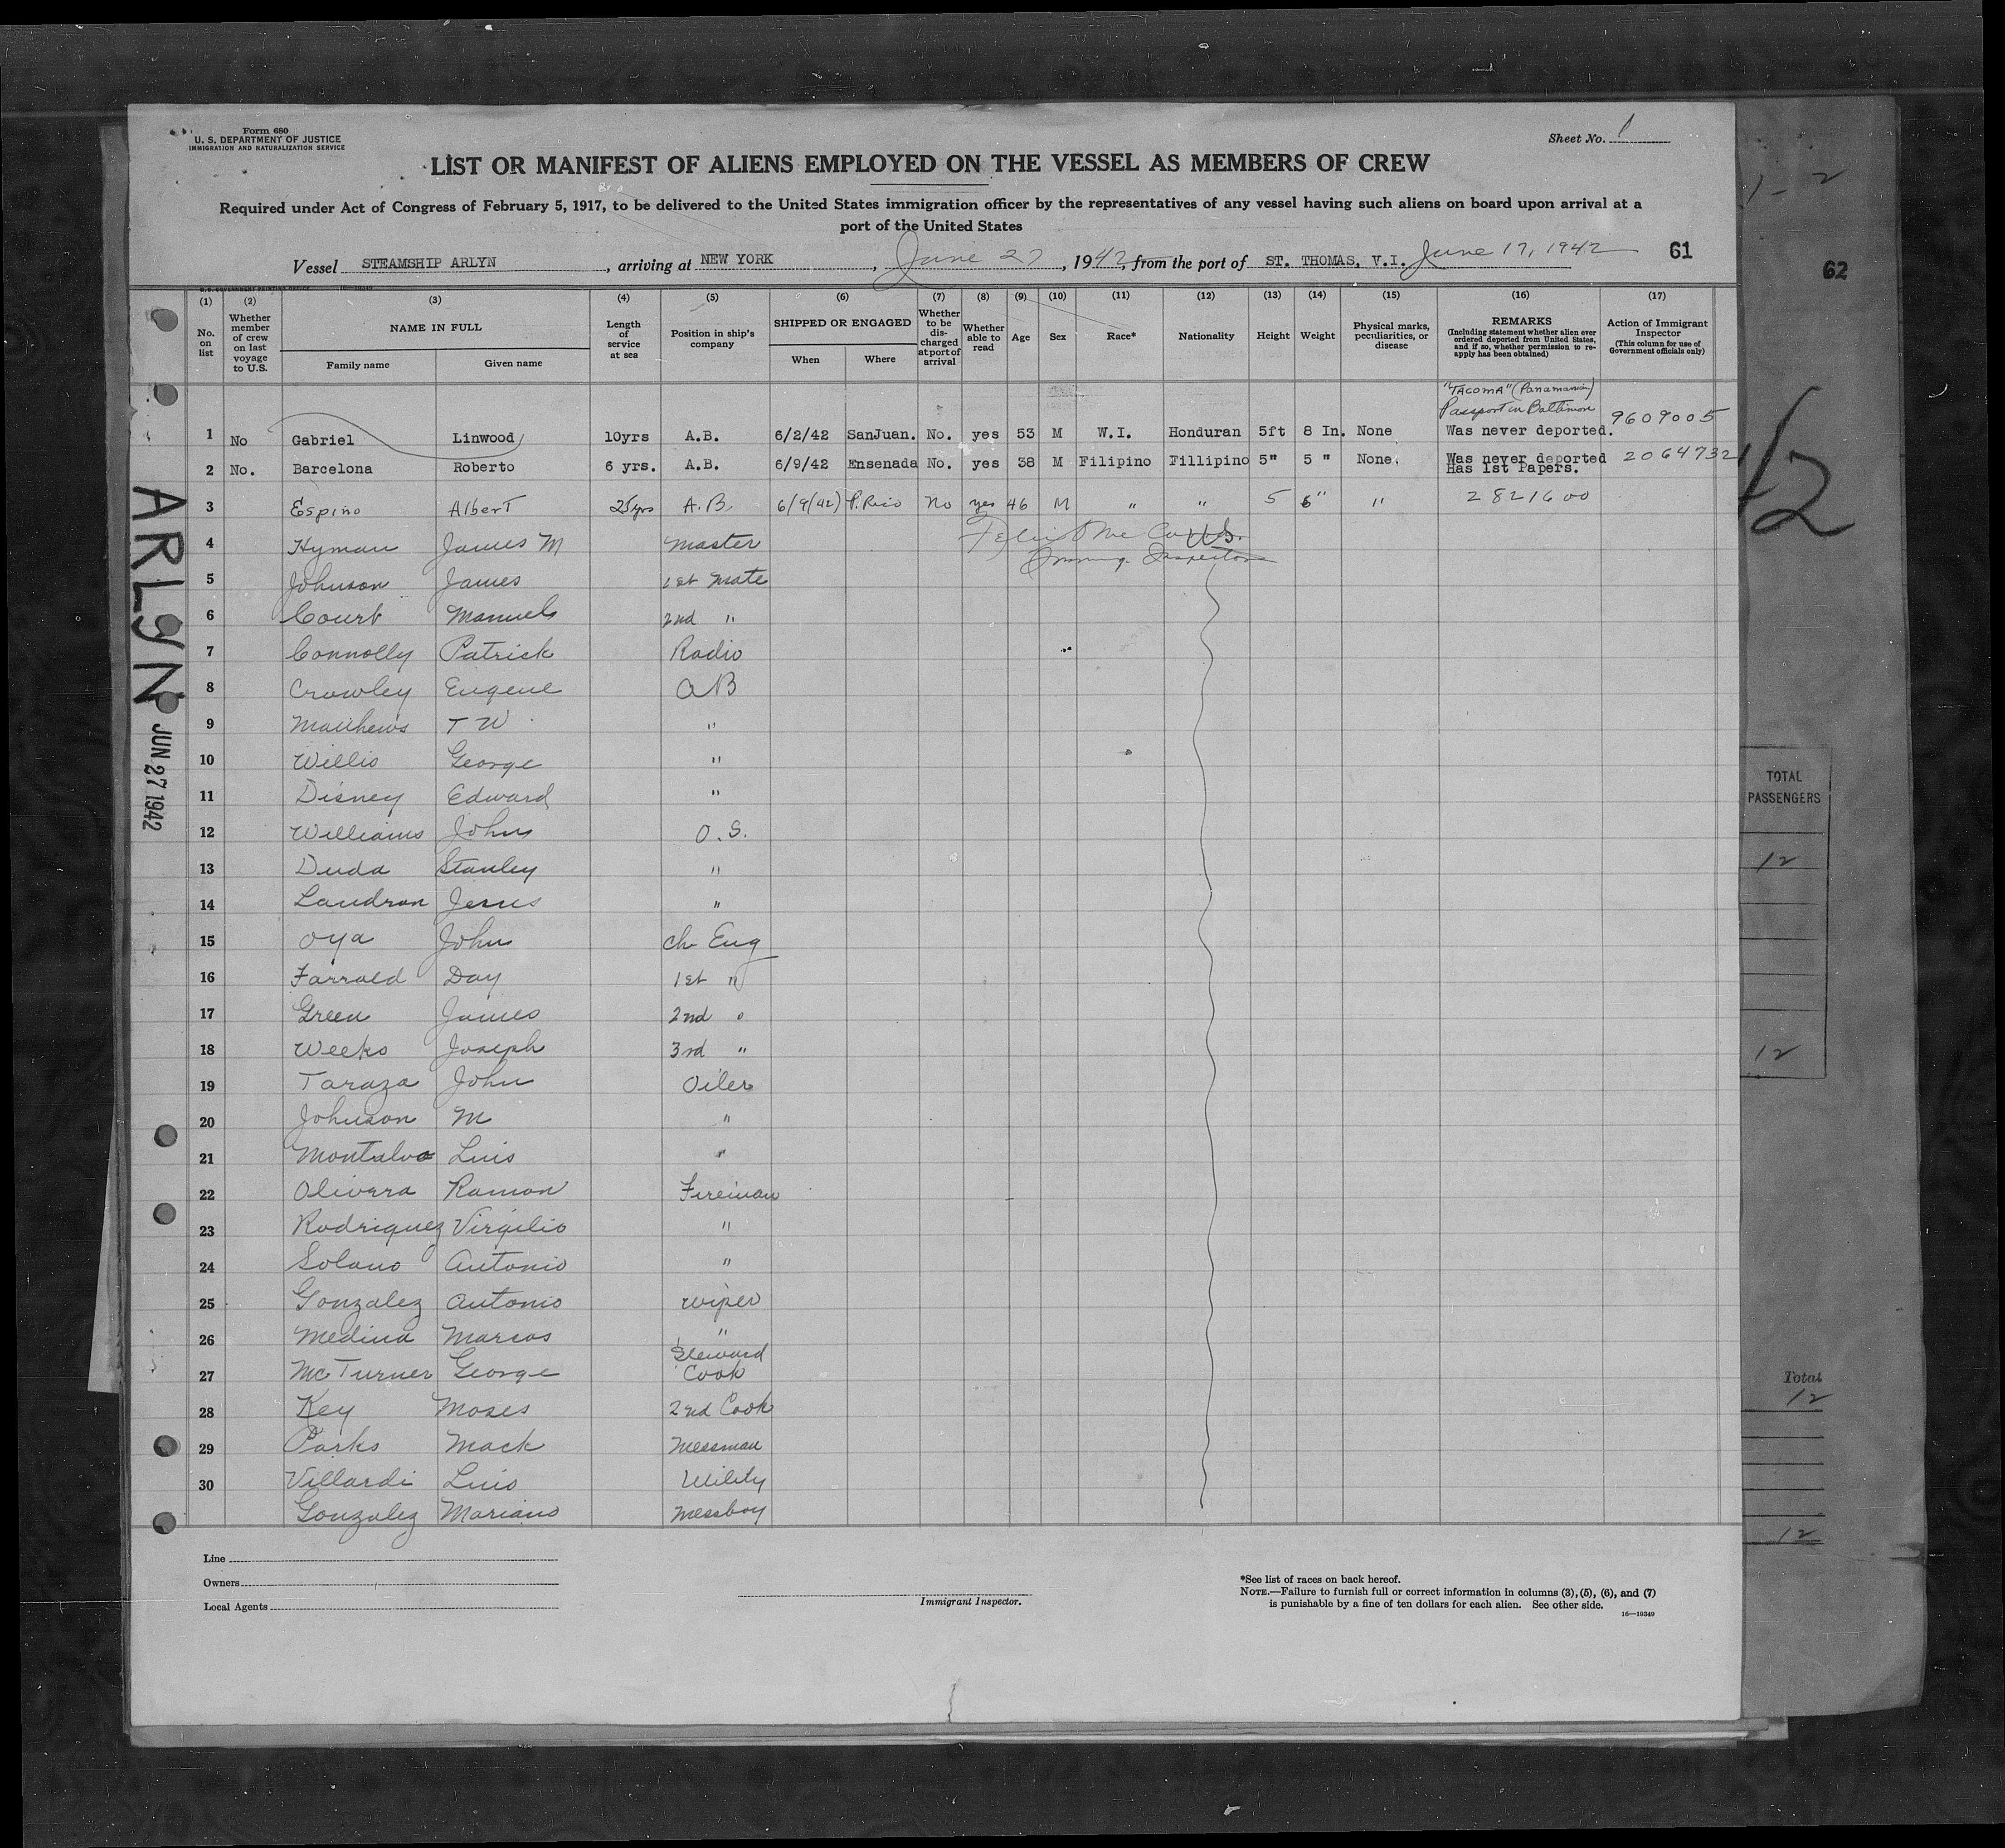 Form 680
U. S. DEPARTMENT OF JUSTICE
IMMIGRATION AND NATURALIZATION SERVICE
Sheet No. 1
LIST OR MANIFEST OF ALIENS EMPLOYED ON THE VESSEL AS MEMBERS OF CREW
Required under Act of Congress of February 5, 1917, to be delivered to the United States immigration officer by the representatives of any vessel having such aliens on board upon arrival at a
port of the United States
Vessel STEAMSHIP ARLYN, arriving at NEW YORK, June 27, 1942, from the port of ST. THOMAS, V.I. June 17, 1942 61
62
(1) (2) (3) (4) (5) (6) (7) (8) (9) (10) (11) (12) (13) (14) (15) (16) (17)
No. on list
Whether member of crew on last voyage to U.S.
NAME IN FULL
Family name Given name
Length of service at sea
Position in ship's company
SHIPPED OR ENGAGED
When Where
Whether to be discharged at port of arrival
Whether able to read
Age
Sex
Race*
Nationality
Height
Weight
Physical marks, peculiarities, or disease
REMARKS
(Including statement whether alien ever ordered deported from United States, and if so, whether permission to reapply has been obtained)
Action of Immigrant Inspector
(This column for use of Government officials only)
"TACOMA" (Panamanian)
Passport in Baltimore 9609005
1 No Gabriel Linwood 10yrs A.B. 6/2/42 SanJuan. No. yes 53 M W.I. Honduran 5ft 8 In. None Was never deported.
2 No. Barcelona Roberto 6 yrs. A.B. 6/9/42 Ensenada No. yes 38 M Filipino Fillipino 5" 5 " None. Was never deported 2064732
Has 1st Papers.
3 Espino Albert 25yrs A.B. 6/9(42) P. Rico No yes 46 M " " 5 6" " 2821600
4 Hyman James M Master
Immig. Inspector
5 Johnson James 1st Mate
6 Court Manuel 2nd "
7 Connolly Patrick Radio
8 Crowley Eugene AB
9 Matthews T W "
10 Willis George "
11 Disney Edward "
12 Williams John O.S.
13 Duda Stanley "
14 Landron Jesus "
15 Oya John Ch Eng
16 Farrald Day 1st "
17 Green James 2nd "
18 Weeks Joseph 3rd "
19 Taraza John Oiler
20 Johnson M "
21 Montalvo Luis "
22 Olivera Ramon Fireman
23 Rodriguez Virgilio "
24 Solano Antonio "
25 Gonzalez Antonio Wiper
26 Medina Marcos "
27 McTurner George Steward Cook
28 Key Moses 2nd Cook
29 Parks Mack Messman
30 Villardi Luis Utility
Gonzalez Mariano Messboy
ARLYN
JUN 27 1942
TOTAL
PASSENGERS
12
12
Total
12
12
Line
Owners
Local Agents
Immigrant Inspector.
*See list of races on back hereof.
NOTE.—Failure to furnish full or correct information in columns (3), (5), (6), and (7)
is punishable by a fine of ten dollars for each alien. See other side.
16—19349